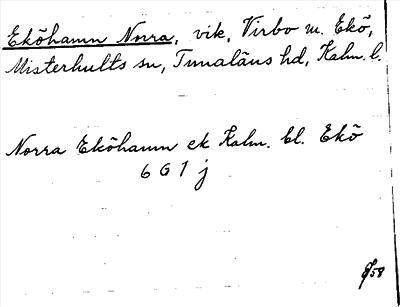 Eköhamn Norra, vik, Virbo m. Ekö,
Misterhults sn, Tunaläns hd, Kalm. l.
Norra Eköhamn ek Kalm. bl. Ekö
6 G 1 j
58